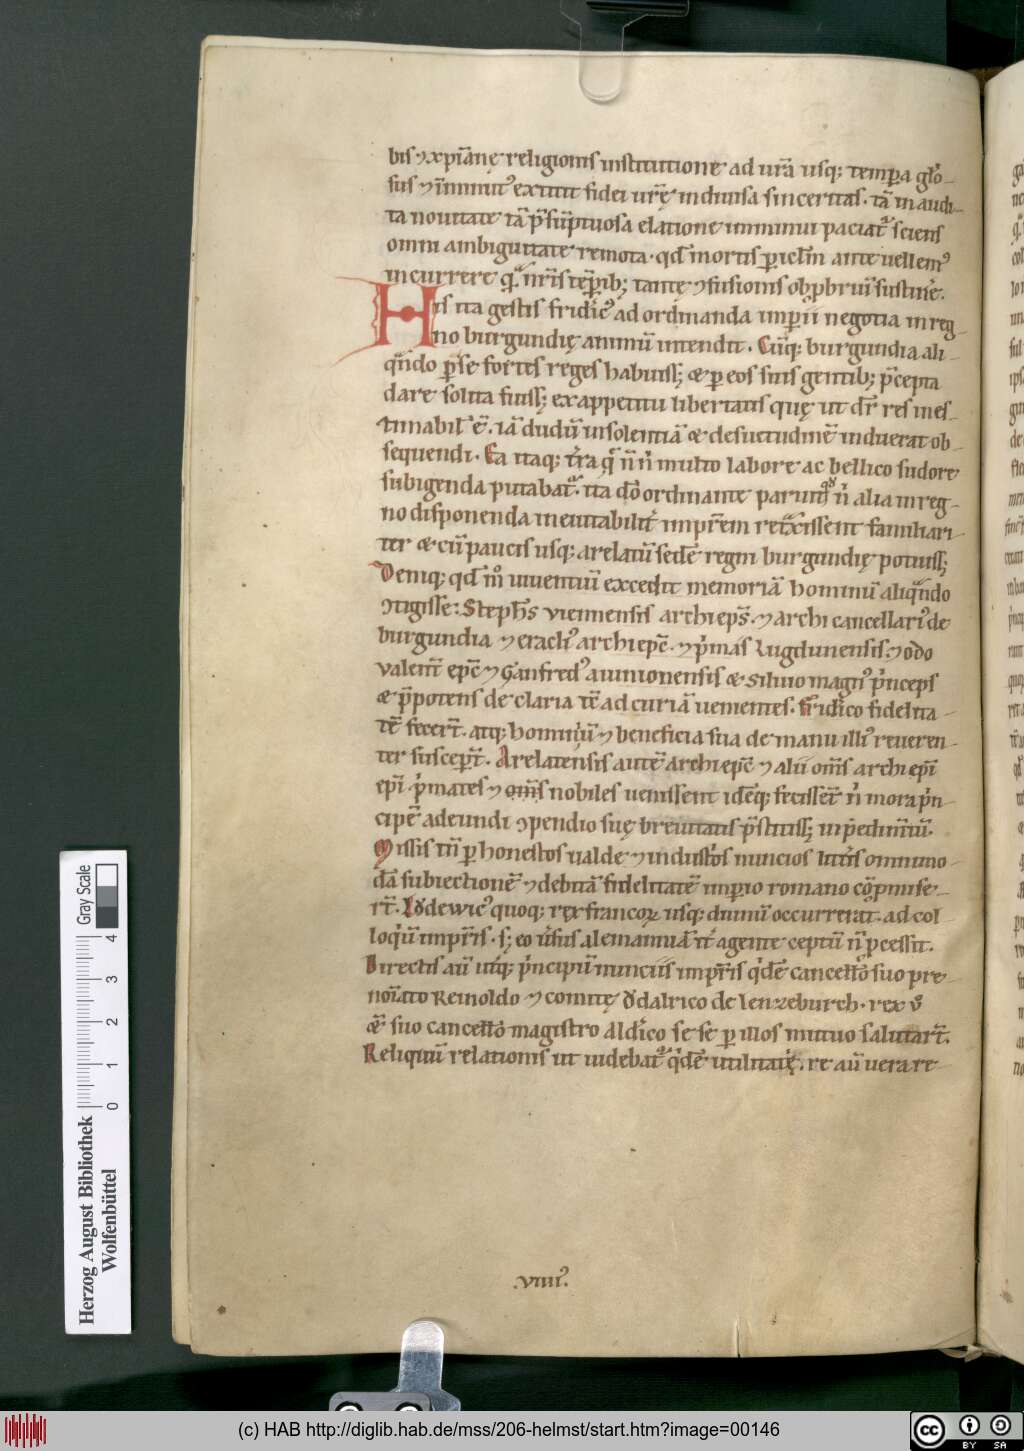 bis ⁊ xp̃ianę religionis institutione ad urã usq; tempora glo-
sus ⁊ inminut᾽ extitit fidei urę̃ indiuisa sinceritas. tã inaudi-
ta nouitate tã p̃sũptuosa elatione imminui paciat᾽ sciens
omni ambiguitate remota. qd̃ mortis p̱iclm̃ ante uellem᾽
incurrere q̃ nr̃is tẽp̱ib; tantę ⁊fusionis obp̱briũ sustin̾e.
His ita gestis fridic᾽ ad ordinanda imp̱ii negotia in reg
no burgundię animũ intendit. Cũq; burgundia ali-
qᵃndo p̱ se fortes reges habuiss; & p̱ eos suis gentib; p̃cepta
dare solita fuiss; ex appetitu libertatis quę ut dr̃ res ines-
timabil᾽ ẽ. iã dudũ insolentiã & desuetudinẽ induerat ob-
sequendi. Ea itaq; t̾ra q̃ ñ n̾ multo labore ac bellico sudore
subigenda putabat᾽. ita dõ ordinante parum᾽ n̾ alia in reg-
no disponenda ineuitabilit̾ imp̱rem retᵃxissent familiari-
ter & cũ paucis usq; arelatũ sedẽ regni burgundię potuiss;
Deniq; qd̃ m̊ uiuentiũ excedit memoriã hominũ aliqᵃndo
⁊tigisse: Stephs̃ viennensis archieps̃. ⁊ archicancellari᾽ de
burgundia ⁊ eracli᾽ archiepc̃. ⁊ p̾mas Lugdunensis. ⁊ odo
valent̃ epc̃ ⁊ Ganfred᾽ auinionensis & siluio magn᾽ p̾nceps
& p̃potens de claria t̃c ad curiã uenientes. fr̃idico fidelita-
tẽ fecer̃t. atq; hominiũ ⁊ beneficia sua de manu illi᾽ reueren-
ter suscep̱t̃. Arelatensis autẽ archiepc̃ ⁊ alii oms̃ archiepĩ
epĩ. p̾mates ⁊ oms̃ nobiles uenissent idẽq; fecissẽt n̾ mora p̾n-
cipẽ adeundi ⁊pendio suę breuitatis p̃stitiss; inpedim̃tũ.
Missis tñ p̱ honestos ualde ⁊ industᵒs nuncios litt̾is omnimo-
dã subiectionẽ ⁊ debitã fidelitatẽ imp̱io romano cõp̱mise-
rt̃. Lodewic᾽ quoq; rex francoꝝ usq; diuinũ occurrerat. ad col-
loq̾ũ imp̱ris̃. s; eo ũsus alemanniã it̾ agente ceptũ ñ p̱cessit.
Directis aũ ut̾q; p̾ncipũ nunciis imp̱ris̃ q̾dẽ cancellõ suo pre-
noĩato Reinoldo ⁊ comitę ǒdalrico de lenzeburch. rex v̊
& suo cancellõ magistro aldico sese p̱ illos mutuo salutart̃.
Reliquũ relationis ut uidebat᾽ q̾dẽ utilitatę̾. re aũ uera re-
.viiii᾽.
Herzog August Bibliothek
Wolfenbüttel
Gray Scale
0 1 2 3 4
(c) HAB http://diglib.hab.de/mss/206-helmst/start.htm?image=00146
cc BY SA